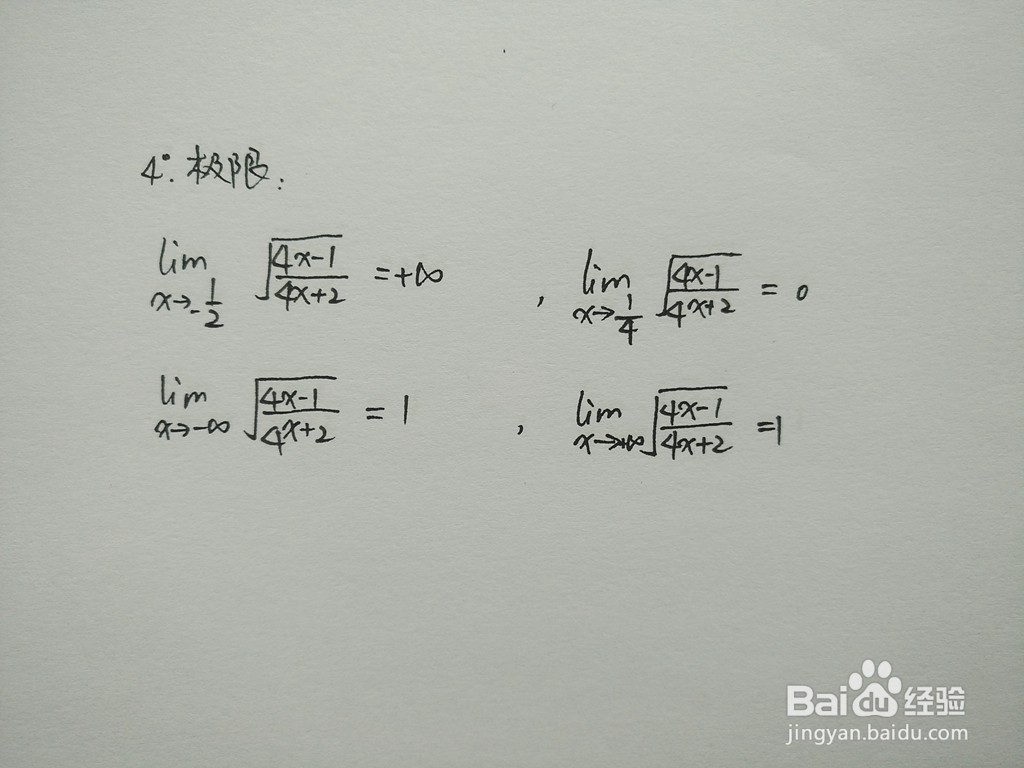 4°. 极限:
lim x→-1/2 √((4x-1)/(4x+2)) = +∞ , lim x→1/4 √((4x-1)/(4x+2)) = 0
lim x→-∞ √((4x-1)/(4x+2)) = 1 , lim x→+∞ √((4x-1)/(4x+2)) = 1
Baidu 经验
jingyan.baidu.com